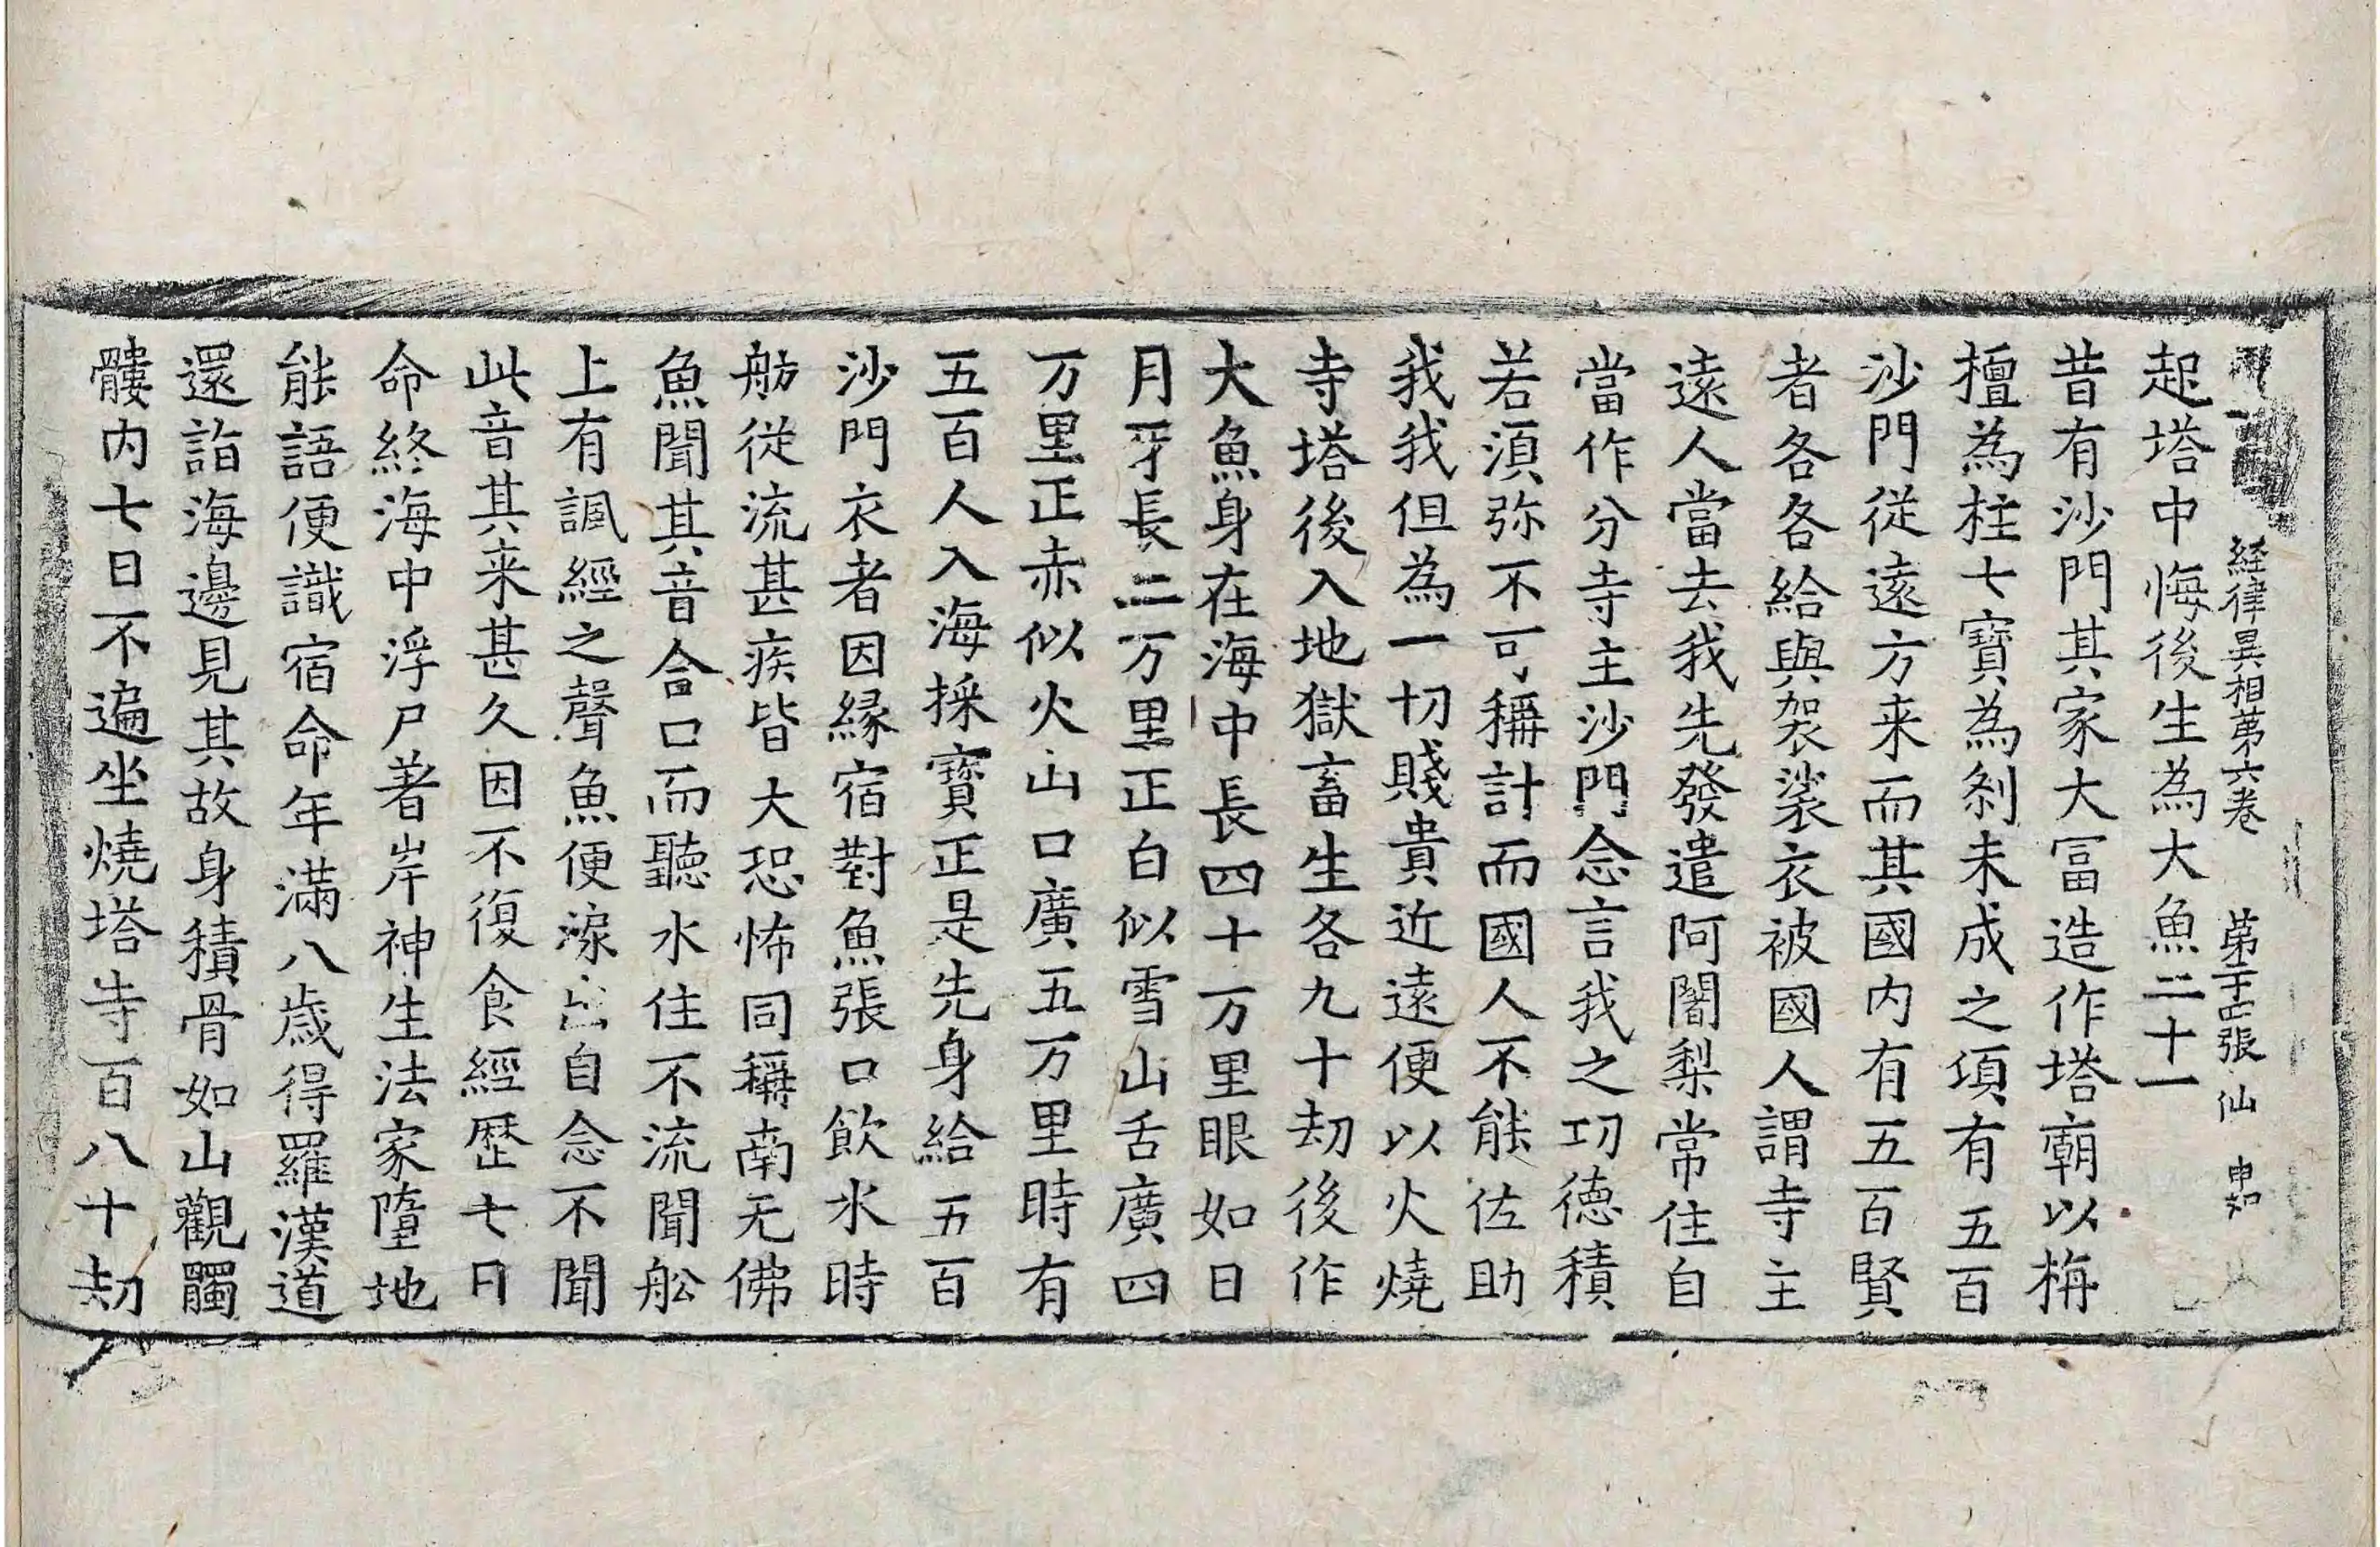 経律異相第六卷 第二十四張 仙 申知
起塔中悔後生為大魚二十一
昔有沙門其家大冨造作塔廟以栴
檀為柱七寶為剎未成之項有五百
沙門從遠方来而其國内有五百賢
者各各給與袈裟衣被國人謂寺主
遠人當去我先發遣阿闍梨常住自
當作分寺主沙門念言我之功德積
若須弥不可稱計而國人不能佐助
我我但為一切賤貴近遠便以火燒
寺塔後入地獄畜生各九十劫後作
大魚身在海中長四十万里眼如日
月牙長二万里正白似雪山舌廣四
万里正赤似火山口廣五万里時有
五百人入海採寶正是先身給五百
沙門衣者因縁宿對魚張口飲水時
舫從流甚疾皆大恐怖同稱南无佛
魚聞其音合口而聽水住不流聞舩
上有諷經之聲魚便淚出自念不聞
此音其来甚久因不復食經歷七日
命終海中浮尸著岸神生法家墮地
能語便識宿命年滿八歲得羅漢道
還詣海邊見其故身積骨如山觀髑
髏内七日不遍坐燒塔寺百八十劫